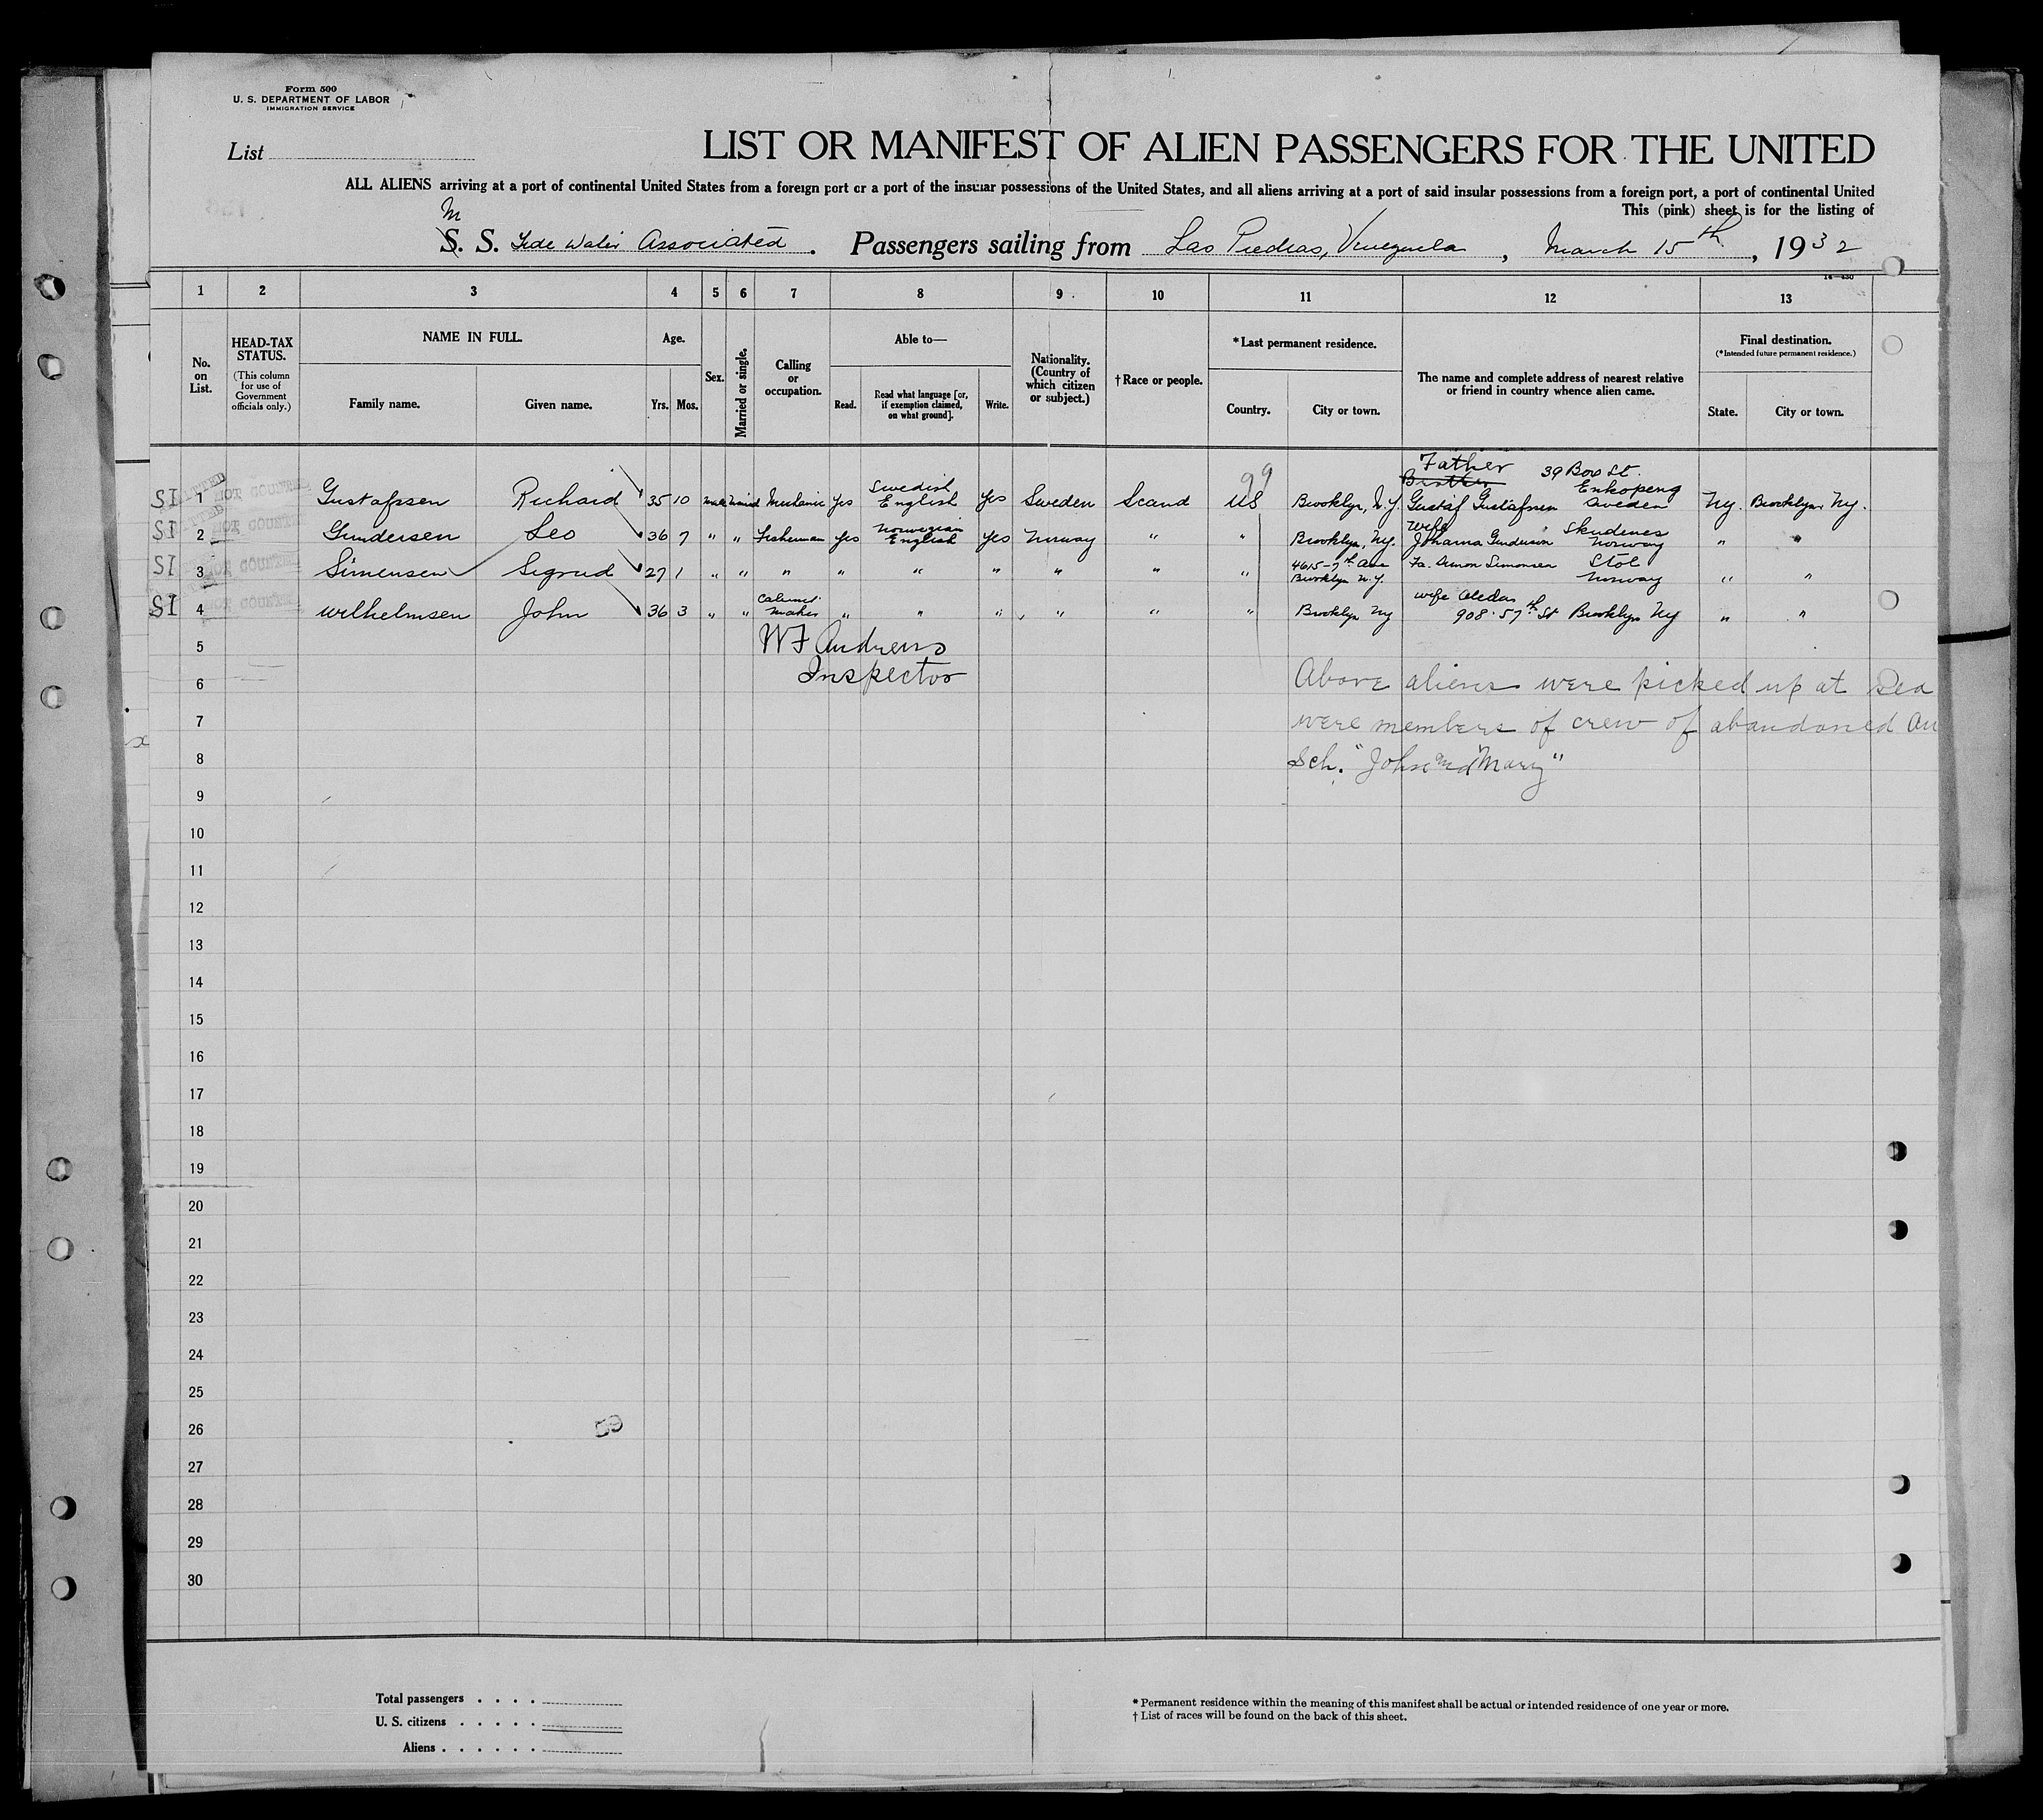 Form 500
U. S. DEPARTMENT OF LABOR
IMMIGRATION SERVICE
List
LIST OR MANIFEST OF ALIEN PASSENGERS FOR THE UNITED
ALL ALIENS arriving at a port of continental United States from a foreign port or a port of the insular possessions of the United States, and all aliens arriving at a port of said insular possessions from a foreign port, a port of continental United
This (pink) sheet is for the listing of
M
S. S. Tide Water Associated. Passengers sailing from Las Piedras, Venezuela, March 15th, 1932
1 2 3 4 5 6 7 8 9 10 11 12 13
No. on List.
HEAD-TAX STATUS.
(This column for use of Government officials only.)
NAME IN FULL.
Family name. Given name.
Age.
Yrs. Mos.
Sex.
Married or single.
Calling or occupation.
Able to—
Read. Read what language [or, if exemption claimed, on what ground]. Write.
Nationality. (Country of which citizen or subject.)
† Race or people.
*Last permanent residence.
Country. City or town.
The name and complete address of nearest relative or friend in country whence alien came.
Final destination.
(*Intended future permanent residence.)
State. City or town.
99
Father 39 Box St.
Brother Enkopeng
SI 1 Gustafssen Richard 35 10 male Mechanic Yes Swedish English Yes Sweden Scand US Brooklyn, N.Y. Gustaf Gustafssen Sweden NY. Brooklyn, NY.
Wife Skudenes
SI 2 Gundersen Leo 36 7 " " Fisherman Yes Norwegian English Yes Norway " " Brooklyn, NY. Johanna Gundersen Norway " "
4615-7th Ave Fa. Simon Simonsen Stol
SI 3 Simensen Sigrud 27 1 " " " " " " " " " Brooklyn N.Y. Norway " "
wife Aledas
SI 4 Wilhelmsen John 36 3 " " Cabinet Maker " " " " " " Brooklyn NY 908-57th St Brooklyn NY " "
NOT COUNTED
5 W F Andrews
Inspector
6 Above aliens were picked up at sea
7 were members of crew of abandoned
8 Sch. "John and Mary"
9
10
11
12
13
14
15
16
17
18
19
20
21
22
23
24
25
26
59
27
28
29
30
Total passengers . . . .
U. S. citizens . . . . .
Aliens . . . . . .
* Permanent residence within the meaning of this manifest shall be actual or intended residence of one year or more.
† List of races will be found on the back of this sheet.